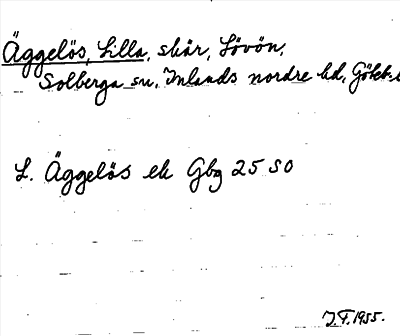 Äggelös, Lilla, skär, Lövön,
Solberga sn, Inlands nordre hd, Göteb.
L. Äggelös ek Gbg 25 SO
J.F. 1955.